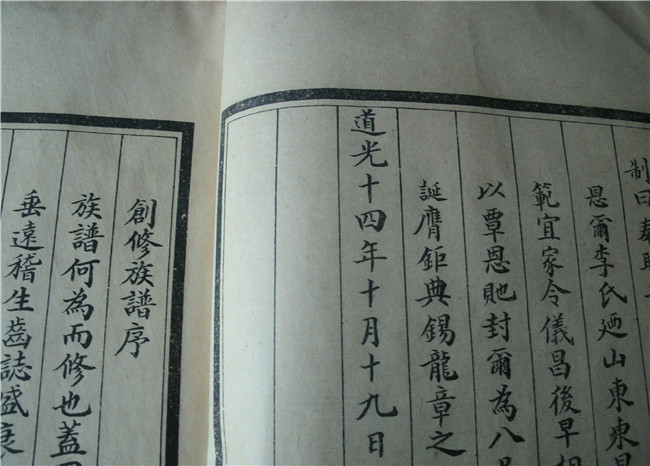 制曰
恩爾李氏廼山東東
範宜家令儀昌後早
以覃恩貤封爾為八
誕膺鉅典錫龍章之
道光十四年十月十九日
創修族譜序
族譜何為而修也蓋
垂遠稽生齒誌盛衰